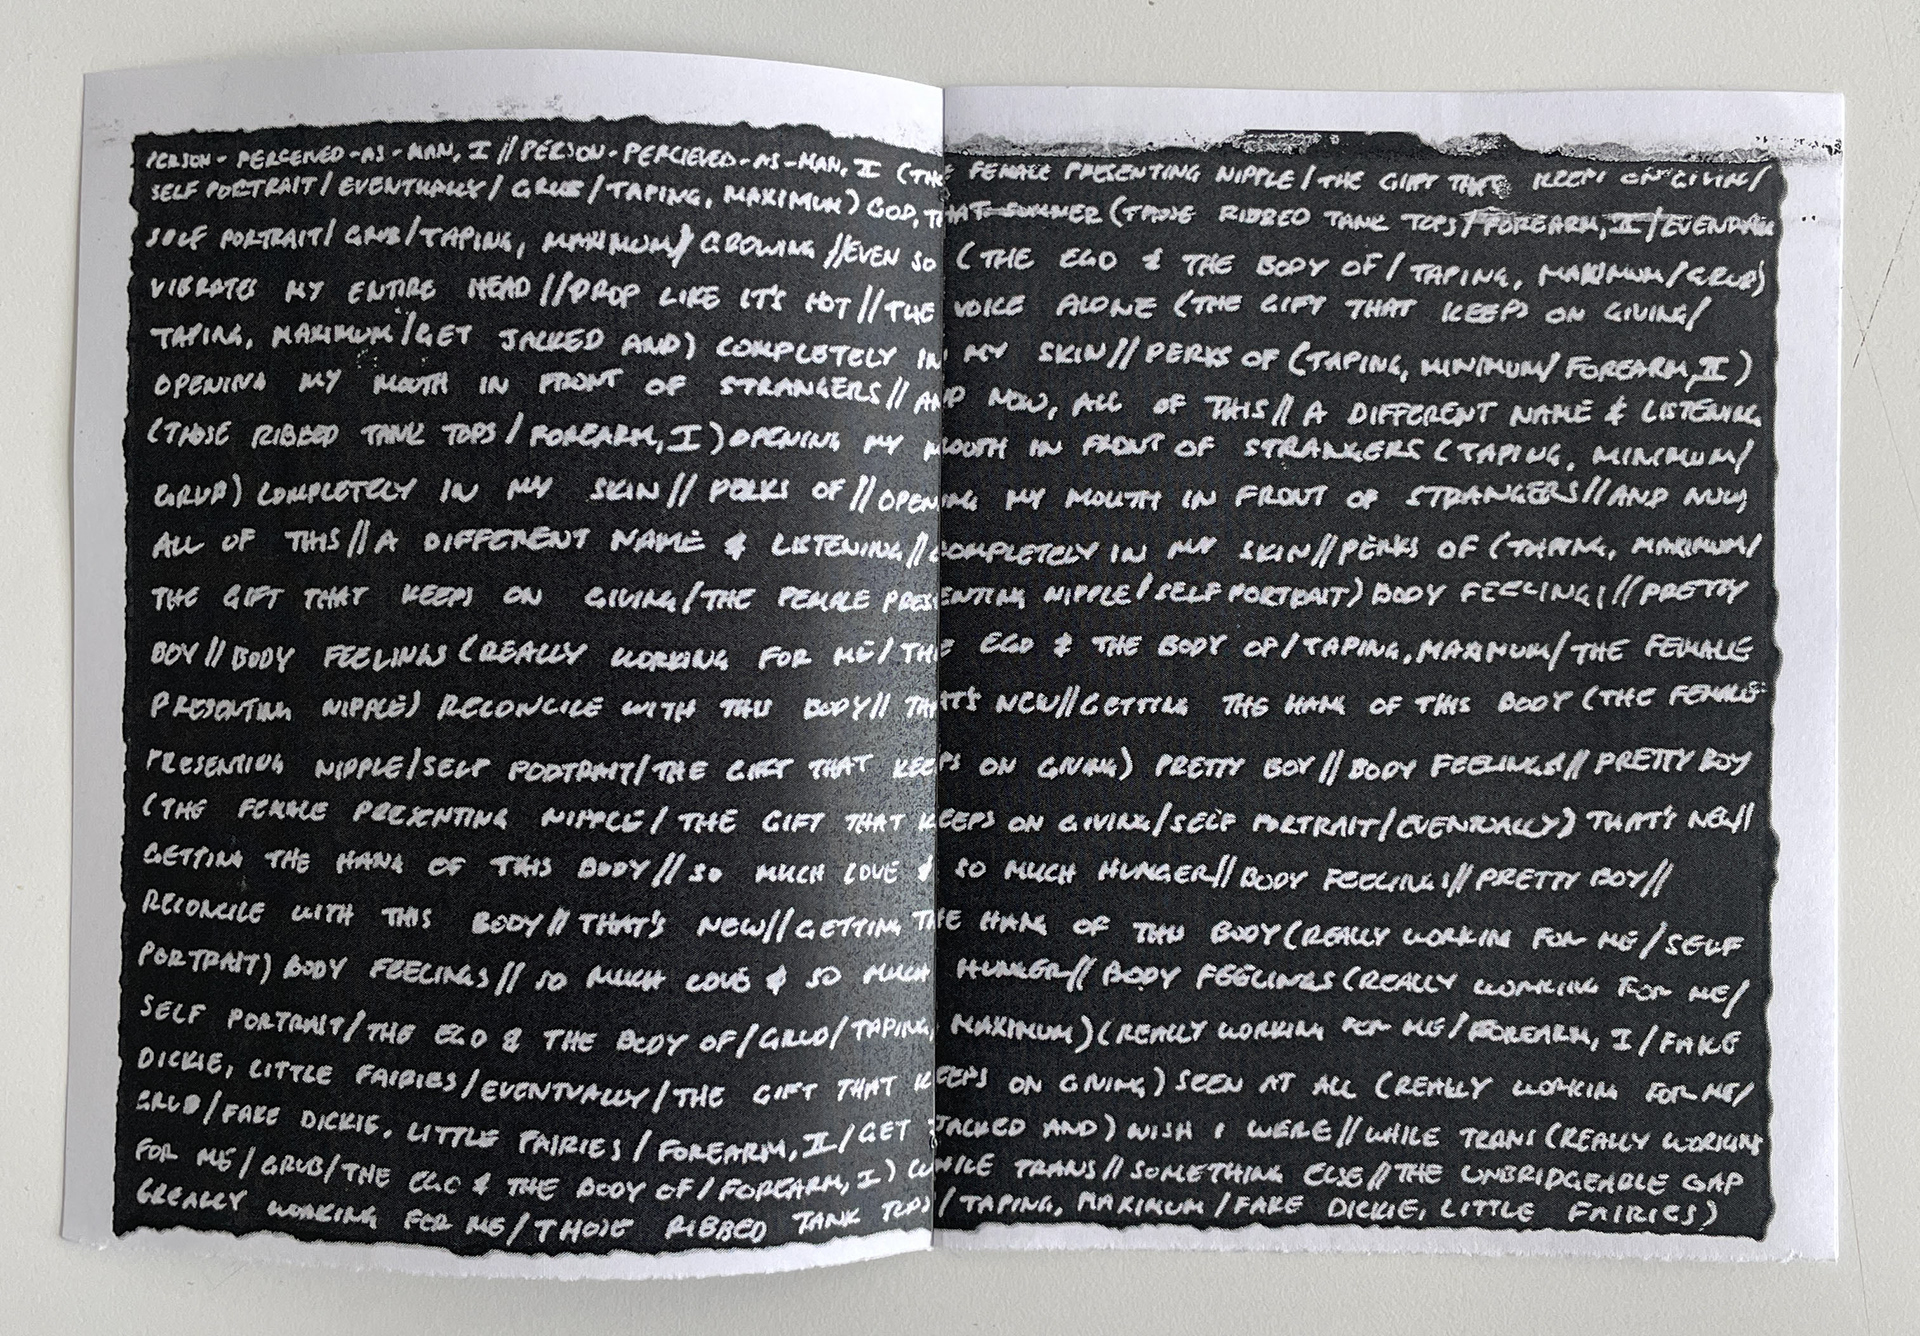 PERSON-PERCEIVED-AS-MAN, I // PERSON-PERCIEVED-AS-MAN, II (THE FEMALE PRESENTING NIPPLE / THE GIFT THAT KEEPS ON GIVIN/
SELF PORTRAIT / EVENTUALLY / GRUB / TAPING, MAXIMUM) GOD, THAT SUMMER (THOSE RIBBED TANK TOPS / FOREARM, II / EVENTUALLY
SELF PORTRAIT / GRUB / TAPING, MAXIMUM) GROWING // EVEN SO (THE EGO & THE BODY OF / TAPING, MAXIMUM / GRUB)
VIBRATES MY ENTIRE HEAD // DROP LIKE IT'S HOT // THE VOICE ALONE (THE GIFT THAT KEEPS ON GIVING/
TAPING, MAXIMUM / GET JACKED AND) COMPLETELY IN MY SKIN // PERKS OF (TAPING, MINIMUM / FOREARM, II)
OPENING MY MOUTH IN FRONT OF STRANGERS // AND NOW, ALL OF THIS // A DIFFERENT NAME & LISTENING
(THOSE RIBBED TANK TOPS / FOREARM, I) OPENING MY MOUTH IN FRONT OF STRANGERS (TAPING, MINIMUM/
GRUB) COMPLETELY IN MY SKIN // PERKS OF // OPENING MY MOUTH IN FRONT OF STRANGERS // AND NOW,
ALL OF THIS // A DIFFERENT NAME & LISTENING // COMPLETELY IN MY SKIN // PERKS OF (TAPING, MAXIMUM/
THE GIFT THAT KEEPS ON GIVING / THE FEMALE PRESENTING NIPPLE / SELF PORTRAIT) BODY FEELINGS // PRETTY
BOY // BODY FEELINGS (REALLY WORKING FOR ME / THE EGO & THE BODY OF / TAPING, MAXIMUM / THE FEMALE
PRESENTING NIPPLE) RECONCILE WITH THIS BODY // THAT'S NEW // GETTING THE HANG OF THIS BODY (THE FEMALE
PRESENTING NIPPLE / SELF PORTRAIT / THE GIFT THAT KEEPS ON GIVING) PRETTY BOY // BODY FEELINGS // PRETTY BOY
(THE FEMALE PRESENTING NIPPLE / THE GIFT THAT KEEPS ON GIVING / SELF PORTRAIT / EVENTUALLY) THAT'S NEW //
GETTING THE HANG OF THIS BODY // SO MUCH LOVE & SO MUCH HUNGER // BODY FEELINGS // PRETTY BOY //
RECONCILE WITH THIS BODY // THAT'S NEW // GETTING THE HANG OF THIS BODY (REALLY WORKING FOR ME / SELF
PORTRAIT) BODY FEELINGS // SO MUCH LOVE & SO MUCH HUNGER // BODY FEELINGS (REALLY WORKING FOR ME/
SELF PORTRAIT / THE EGO & THE BODY OF / GRUB / TAPING, MAXIMUM) (REALLY WORKING FOR ME / FOREARM, I / FAKE
DICKIE, LITTLE FAIRIES / EVENTUALLY / THE GIFT THAT KEEPS ON GIVING) SEEN AT ALL (REALLY WORKING FOR ME/
GRUB / FAKE DICKIE, LITTLE FAIRIES / FOREARM, II / GET JACKED AND) WISH I WERE // WHILE TRANS (REALLY WORKING
FOR ME / GRUB / THE EGO & THE BODY OF / FOREARM, I) WHILE TRANS // SOMETHING ELSE // THE UNBRIDGEABLE GAP
(REALLY WORKING FOR ME / THOSE RIBBED TANK TOPS / TAPING, MAXIMUM / FAKE DICKIE, LITTLE FAIRIES)